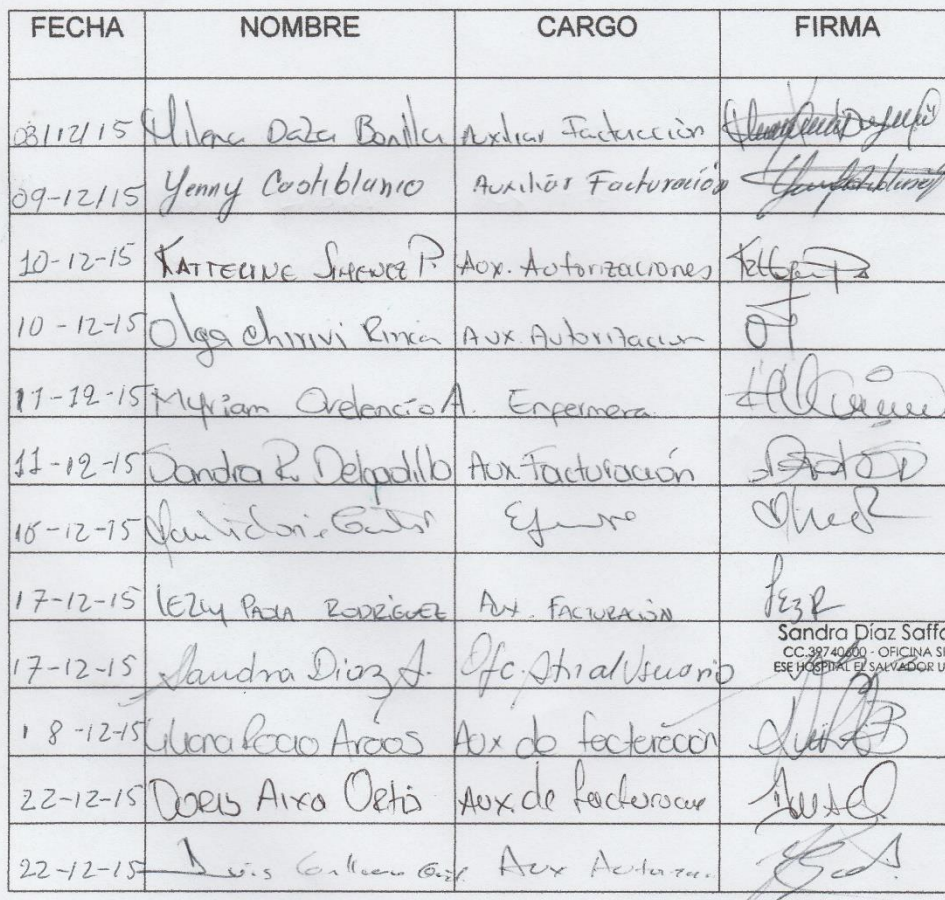 FECHA NOMBRE CARGO FIRMA
03/12/15 Milena Daza Bonilla Auxiliar Facturacción
09-12/15 Yenny Castiblanco Auxiliar Facturación
10-12-15 KATTERINE JIMENEZ P. Aux. Autorizaciones
10-12-15 Olga Chirivi Rincon Aux. Autorizacion
11-12-15 Myriam Ovelencio A. Enfermera
11-12-15 Sandra R. Delgadillo Aux Facturación
16-12-15
17-12-15 LEZLY PAOLA RODRIGUEZ Aux. FACTURACIÓN
Sandra Díaz Saffo
CC.39740600 - OFICINA SI
ESE HOSPITAL EL SALVADOR U
17-12-15 Sandra Diaz S. Ofc. Atn al Usuario
18-12-15 Liliana Rocio Aroos Aux de facteración
22-12-15 DORIS Aixa Ortis Aux de facturacion
22-12-15 Luis Aux